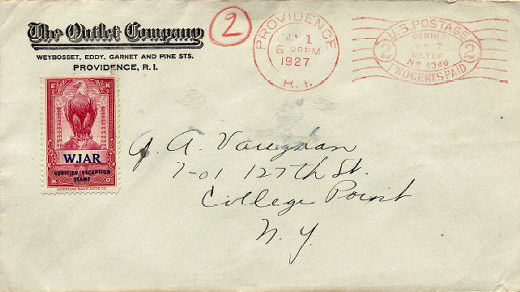 The Outlet Company
WEYBOSSET, EDDY, GARNET AND PINE STS.
PROVIDENCE, R. I.
2
PROVIDENCE
1
6 PM
1927
R. I.
U.S. POSTAGE
PERMIT
NO 7
METER
No 4346
2 2
TWO CENTS PAID
WJAR
VERIFIED RECEPTION
STAMP
AMERICAN BANK NOTE CO.
A. Vaughan
7-01 127th St.
College Point
N.Y.